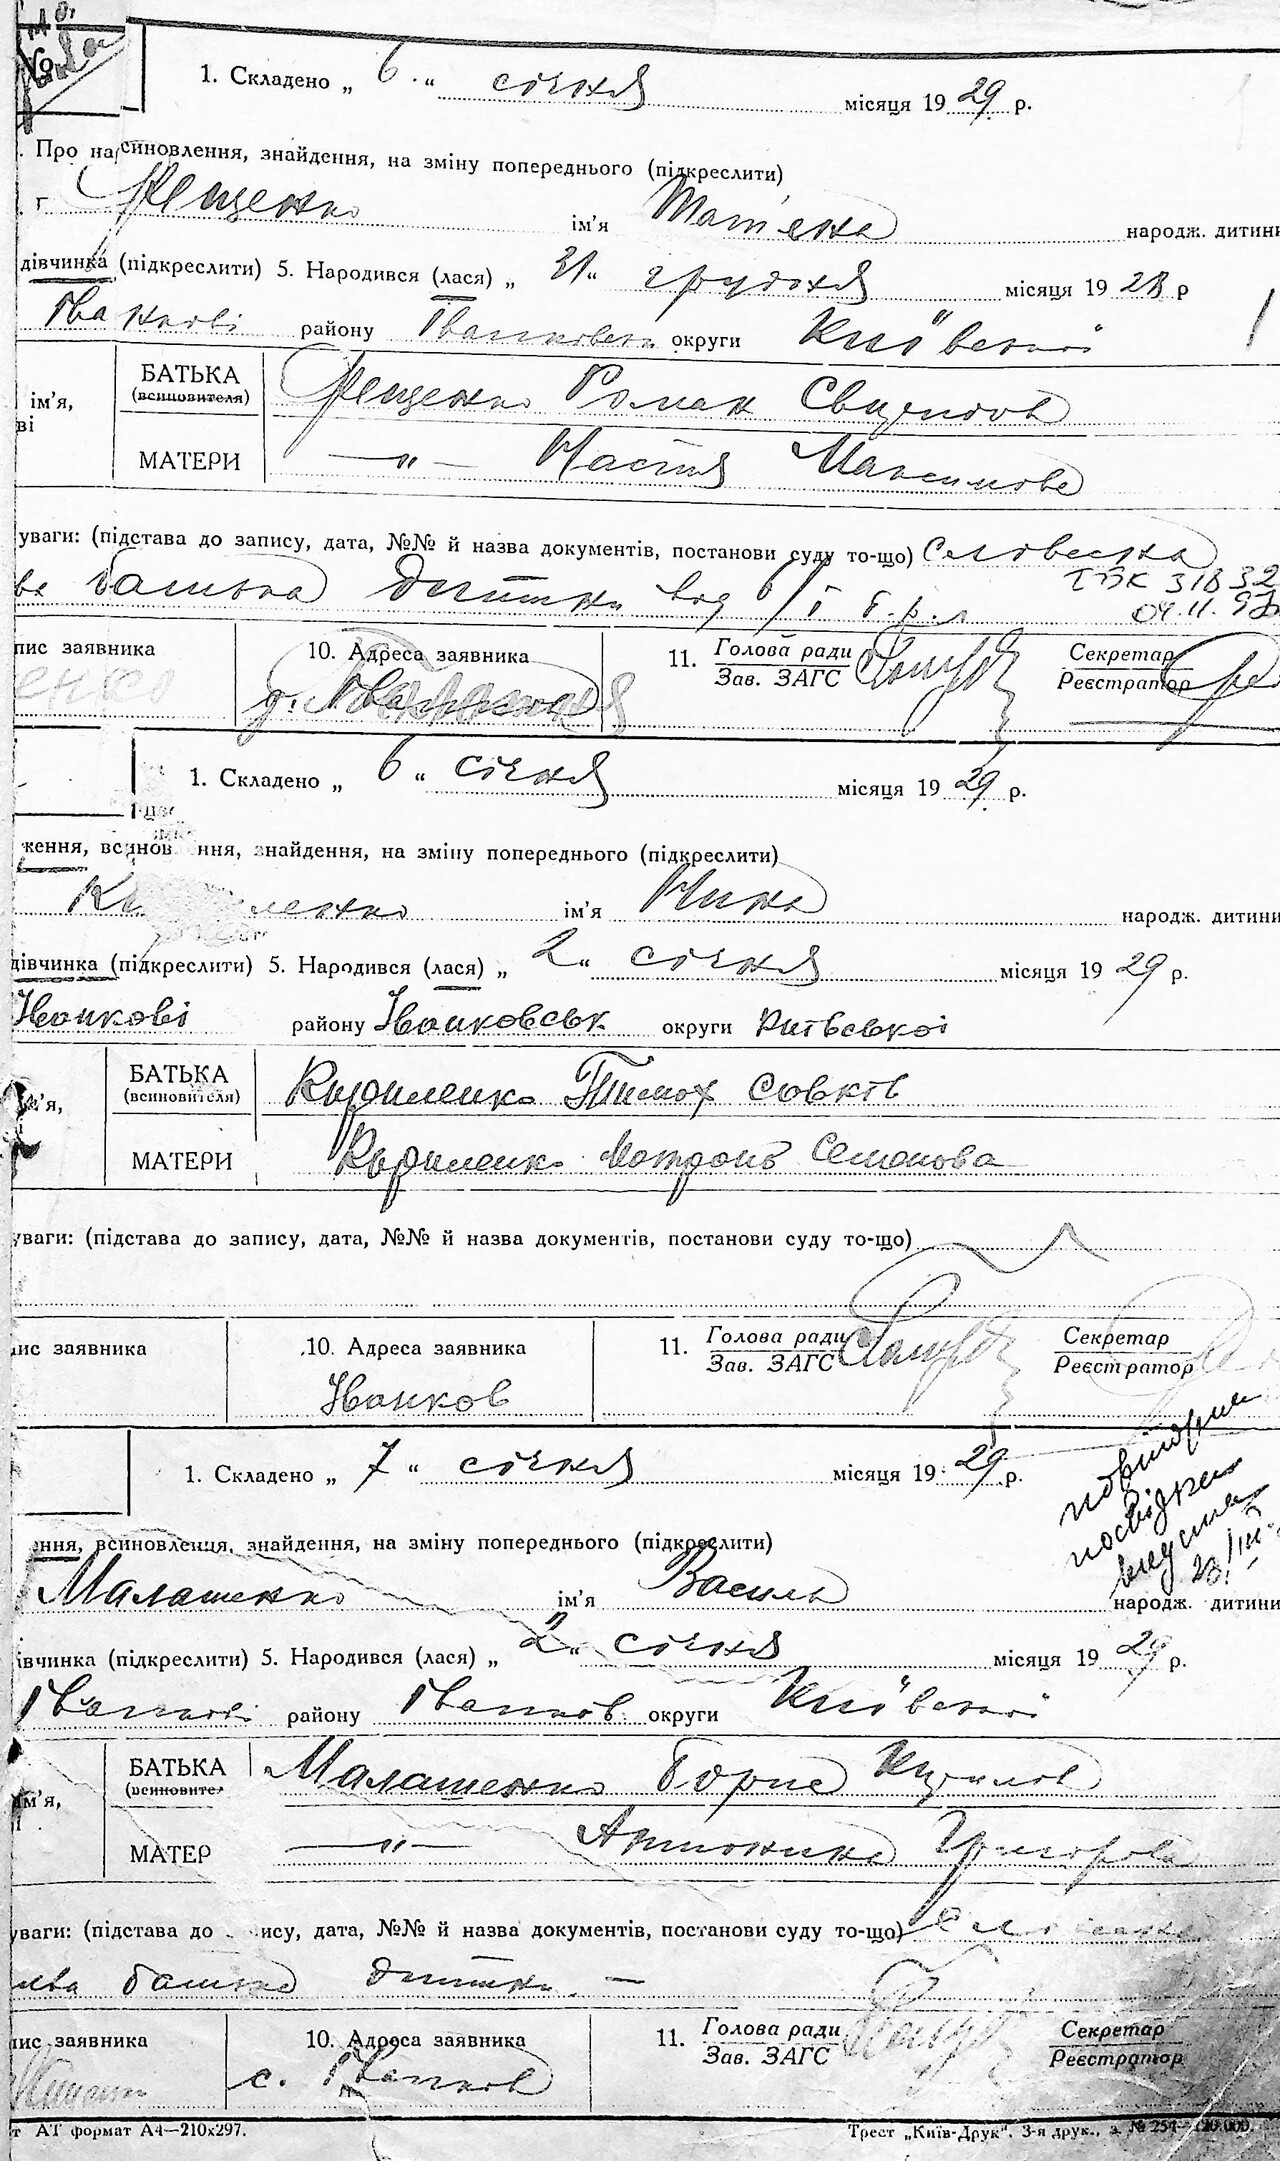 №
1. Складено „ 6 “ січня місяця 19 29 р.
. Про на синовлення, знайдення, на зміну попереднього (підкреслити)
ім’я народж. дитини
дівчинка (підкреслити) 5. Народився (лася) „ 31 “ грудня місяця 19 28 р
Іванкові району Іванковськ округи Київської
ім’я, БАТЬКА (всиновителя) Роман
ві
МАТЕРИ —„— Настя Максимова
уваги: (підстава до запису, дата, №№ й назва документів, постанови суду то-що) Словесна
ва батька дитини від
04.11.
пис заявника 10. Адреса заявника 11. Голова ради Секретар
Зав. ЗАГС Реєстратор
енко
1. Складено „ 6 “ січня місяця 19 29 р.
ження, всинов ння, знайдення, на зміну попереднього (підкреслити)
ленко ім’я Нина народж. дитини
дівчинка (підкреслити) 5. Народився (лася) „ 2 “ січня місяця 19 29 р.
Іванкові району Іванковськ. округи Київської
м’я, БАТЬКА (всиновителя) Кириленко Тимох
МАТЕРИ Кириленко Мотрона Семонова
уваги: (підстава до запису, дата, №№ й назва документів, постанови суду то-що)
ис заявника 10. Адреса заявника 11. Голова ради Секретар
Зав. ЗАГС Реєстратор
Іванков
1. Складено „ 7 “ січня місяця 19 29 р.
повторне
посвідчен
видано
ення, всиновлення, знайдення, на зміну попереднього (підкреслити)
Малашенко ім’я Василь народж. дитини
івчинка (підкреслити) 5. Народився (лася) „ 2 “ січня місяця 19 29 р.
Іванкові району Іванков. округи Київської
м’я, БАТЬКА (всиновител Малашенко Борис Кирилов
МАТЕР —„— Антонина Григорова
уваги: (підстава до ису, дата, №№ й назва документів, постанови суду то-що) Словесна
ява батька дитини —
пис заявника 10. Адреса заявника 11. Голова ради Секретар
Зав. ЗАГС Реєстратор
с. Іванков
т АТ формат А4—210х297. Трест „Київ-Друк“, 3-я друк., з. № 254—120.000.